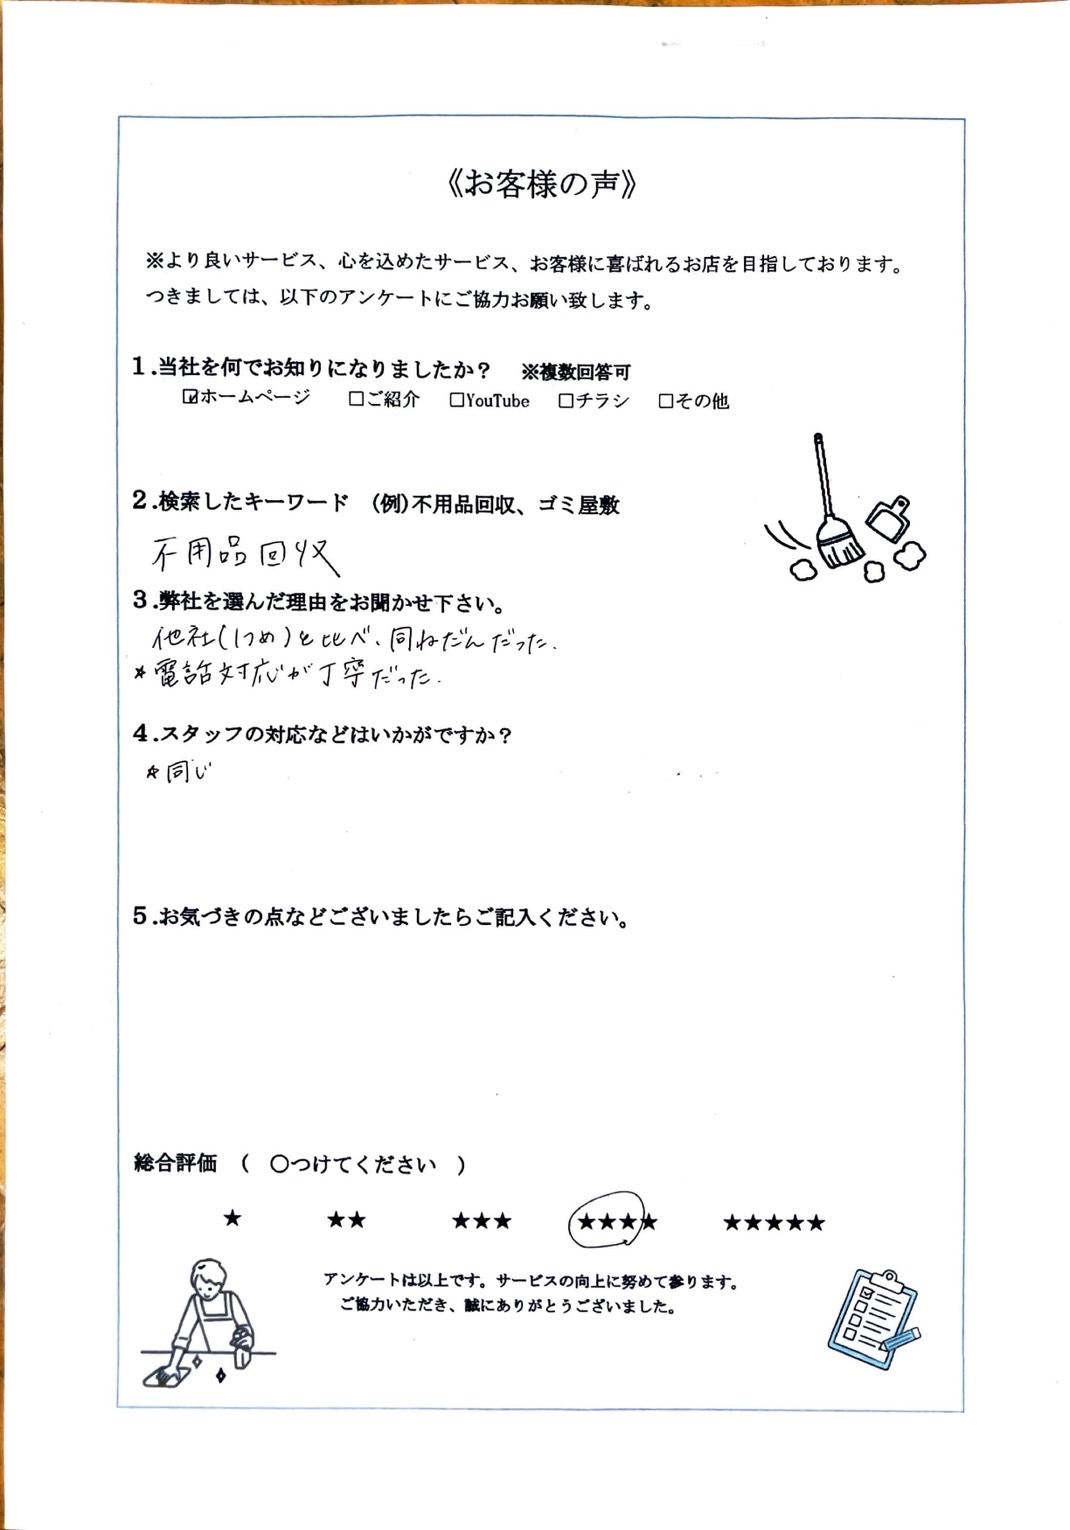 《お客様の声》
※より良いサービス、心を込めたサービス、お客様に喜ばれるお店を目指しております。
つきましては、以下のアンケートにご協力お願い致します。
1.当社を何でお知りになりましたか? ※複数回答可
☑ホームページ □ご紹介 □YouTube □チラシ □その他
2.検索したキーワード (例)不用品回収、ゴミ屋敷
不用品回収
3.弊社を選んだ理由をお聞かせ下さい。
他社(1つめ)と比べ、同ねだんだった.
*電話対応が丁寧だった.
4.スタッフの対応などはいかがですか?
*同じ
5.お気づきの点などございましたらご記入ください。
総合評価 ( ○つけてください )
★ ★★ ★★★ ★★★★ ★★★★★
アンケートは以上です。サービスの向上に努めて参ります。
ご協力いただき、誠にありがとうございました。